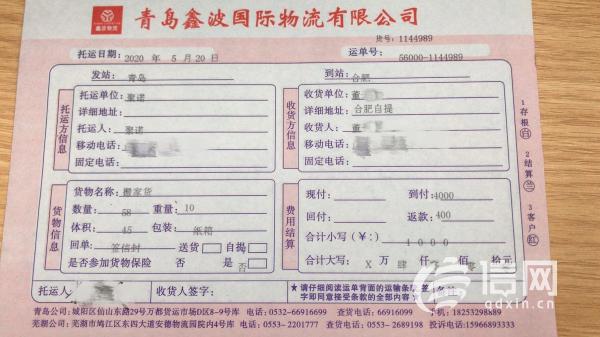 鑫波物流
青岛鑫波国际物流有限公司
货号: 1144989
托运日期: 2020 年 5 月 20 日
运单号: 56000-1144989
发站: 青岛
到站: 合肥
托运方信息
托运单位: 聚诺
详细地址:
托运人: 聚诺
移动电话:
固定电话:
收货方信息
收货单位: 董
详细地址: 合肥自提
收货人: 董
移动电话:
固定电话:
货物信息
货物名称: 搬家货
数量: 58 重量: 10
体积: 45 包装: 纸箱
回单: 签信封 送货 自提
是否参加货物保险 是 否
费用结算
现付: 到付: 4000
回付: 返款: 400
合计小写(¥): 4000
合计大写: X 万 肆 仟 零 拾元
托运人:
收货人签字:
★请仔细阅读运单背面的运输条款 签
字即同意接受条款的全部内容
1 存根(白) 2 结算(兰) 3 客户(红)
信网
qdxin.cn
青岛公司: 城阳区仙山东路29号万都货运市场D区8-9号库 电话: 0532-66916699 查货: 66916099 手机: 18253298889
芜湖公司: 芜湖市鸠江区东四大道安德物流园院内4号库 电话: 0553-2201777 查货: 0553-2689198 投诉电话: 15966893333